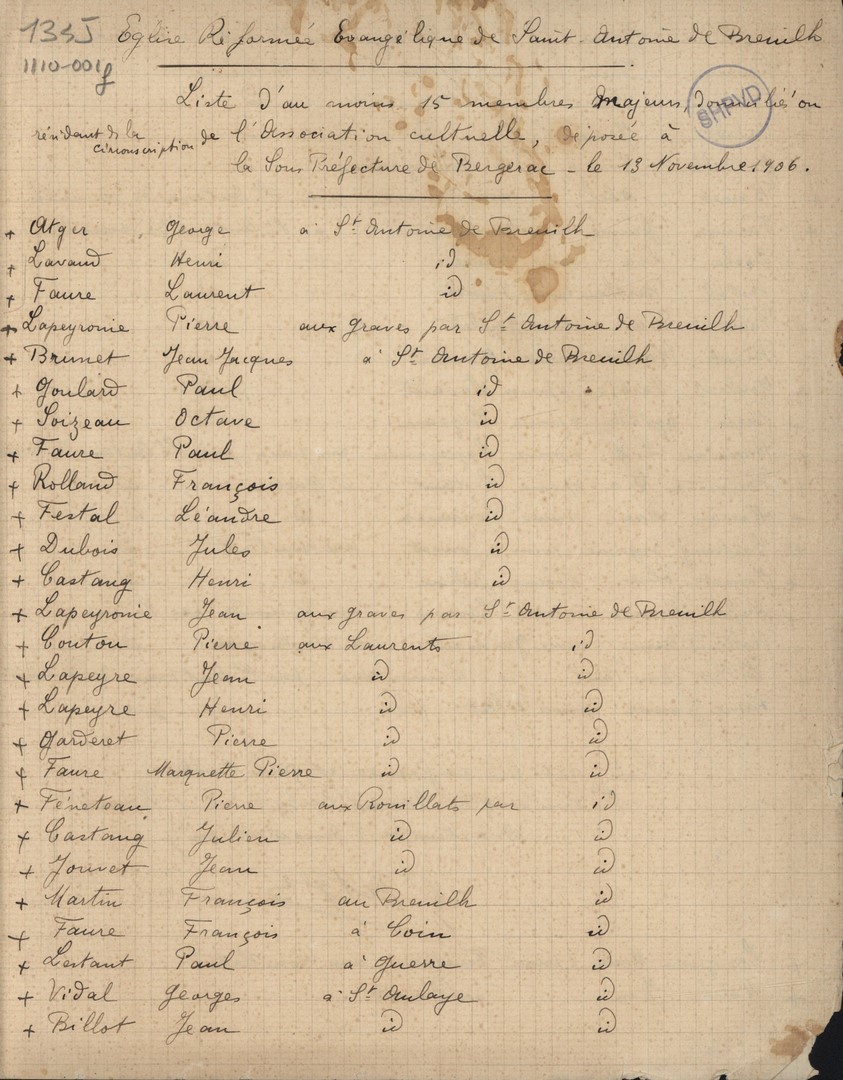 1335
1110-001f
Eglise Réformée Evangélique de Saint-Antoine de Breuilh
SHPVD
Liste d'au moins 15 membres majeurs, domiciliés ou
résidant ds la circonscription de l'Association cultuelle, déposée à
la Sous Préfecture de Bergerac - le 13 Novembre 1906.
+ Atger George à St Antoine de Breuilh
+ Lavaud Henri id
+ Faure Laurent id
+ Lapeyronie Pierre aux graves par St Antoine de Breuilh
+ Brunet Jean Jacques à St Antoine de Breuilh
+ Goulard Paul id
+ Soizeau Octave id
+ Faure Paul id
+ Rolland François id
+ Festal Léandre id
+ Dubois Jules id
+ Castang Henri id
+ Lapeyronie Jean aux graves par St Antoine de Breuilh
+ Coutou Pierre aux Laurents id
+ Lapeyre Jean id id
+ Lapeyre Henri id id
+ Garderet Pierre id id
+ Faure Marquette Pierre id id
+ Féneteau Pierre aux Rouillats par id
+ Castang Julien id id
+ Jouvet Jean id id
+ Martin François au Breuilh id
+ Faure François à Coin id
+ Lestant Paul à Guerre id
+ Vidal Georges à St Aulaye id
+ Billot Jean id id